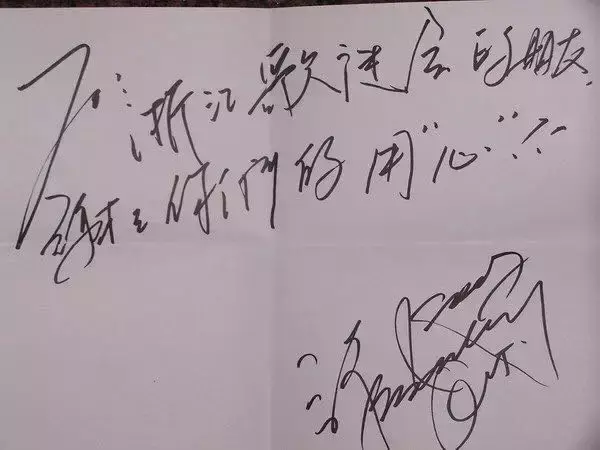 To: 浙江歌迷会的朋友.
謝々你們的用"心"!!